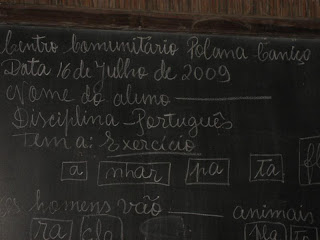 Centro Comunitário Polana Caniço
Data 16 de Julho de 2009
Nome do aluno
Disciplina Português
Tema: Exercício
a nhar pa ta
os homens vão animais
ra